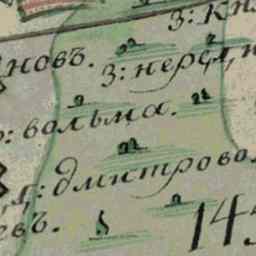 З: кн
новъ.
З: неред
: вольма.
д: дмитрово
евъ.
14